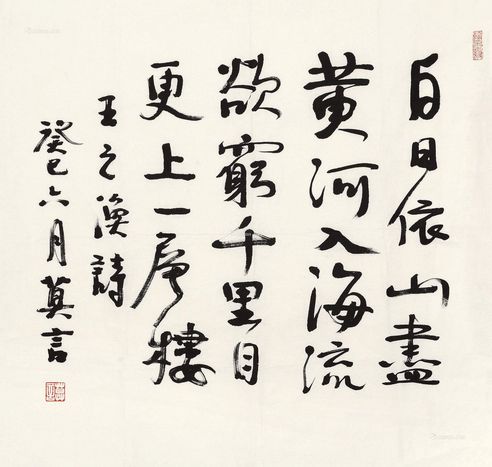 白日依山盡
黄河入海流
欲窮千里目
更上一層樓
王之渙詩
癸巳六月莫言